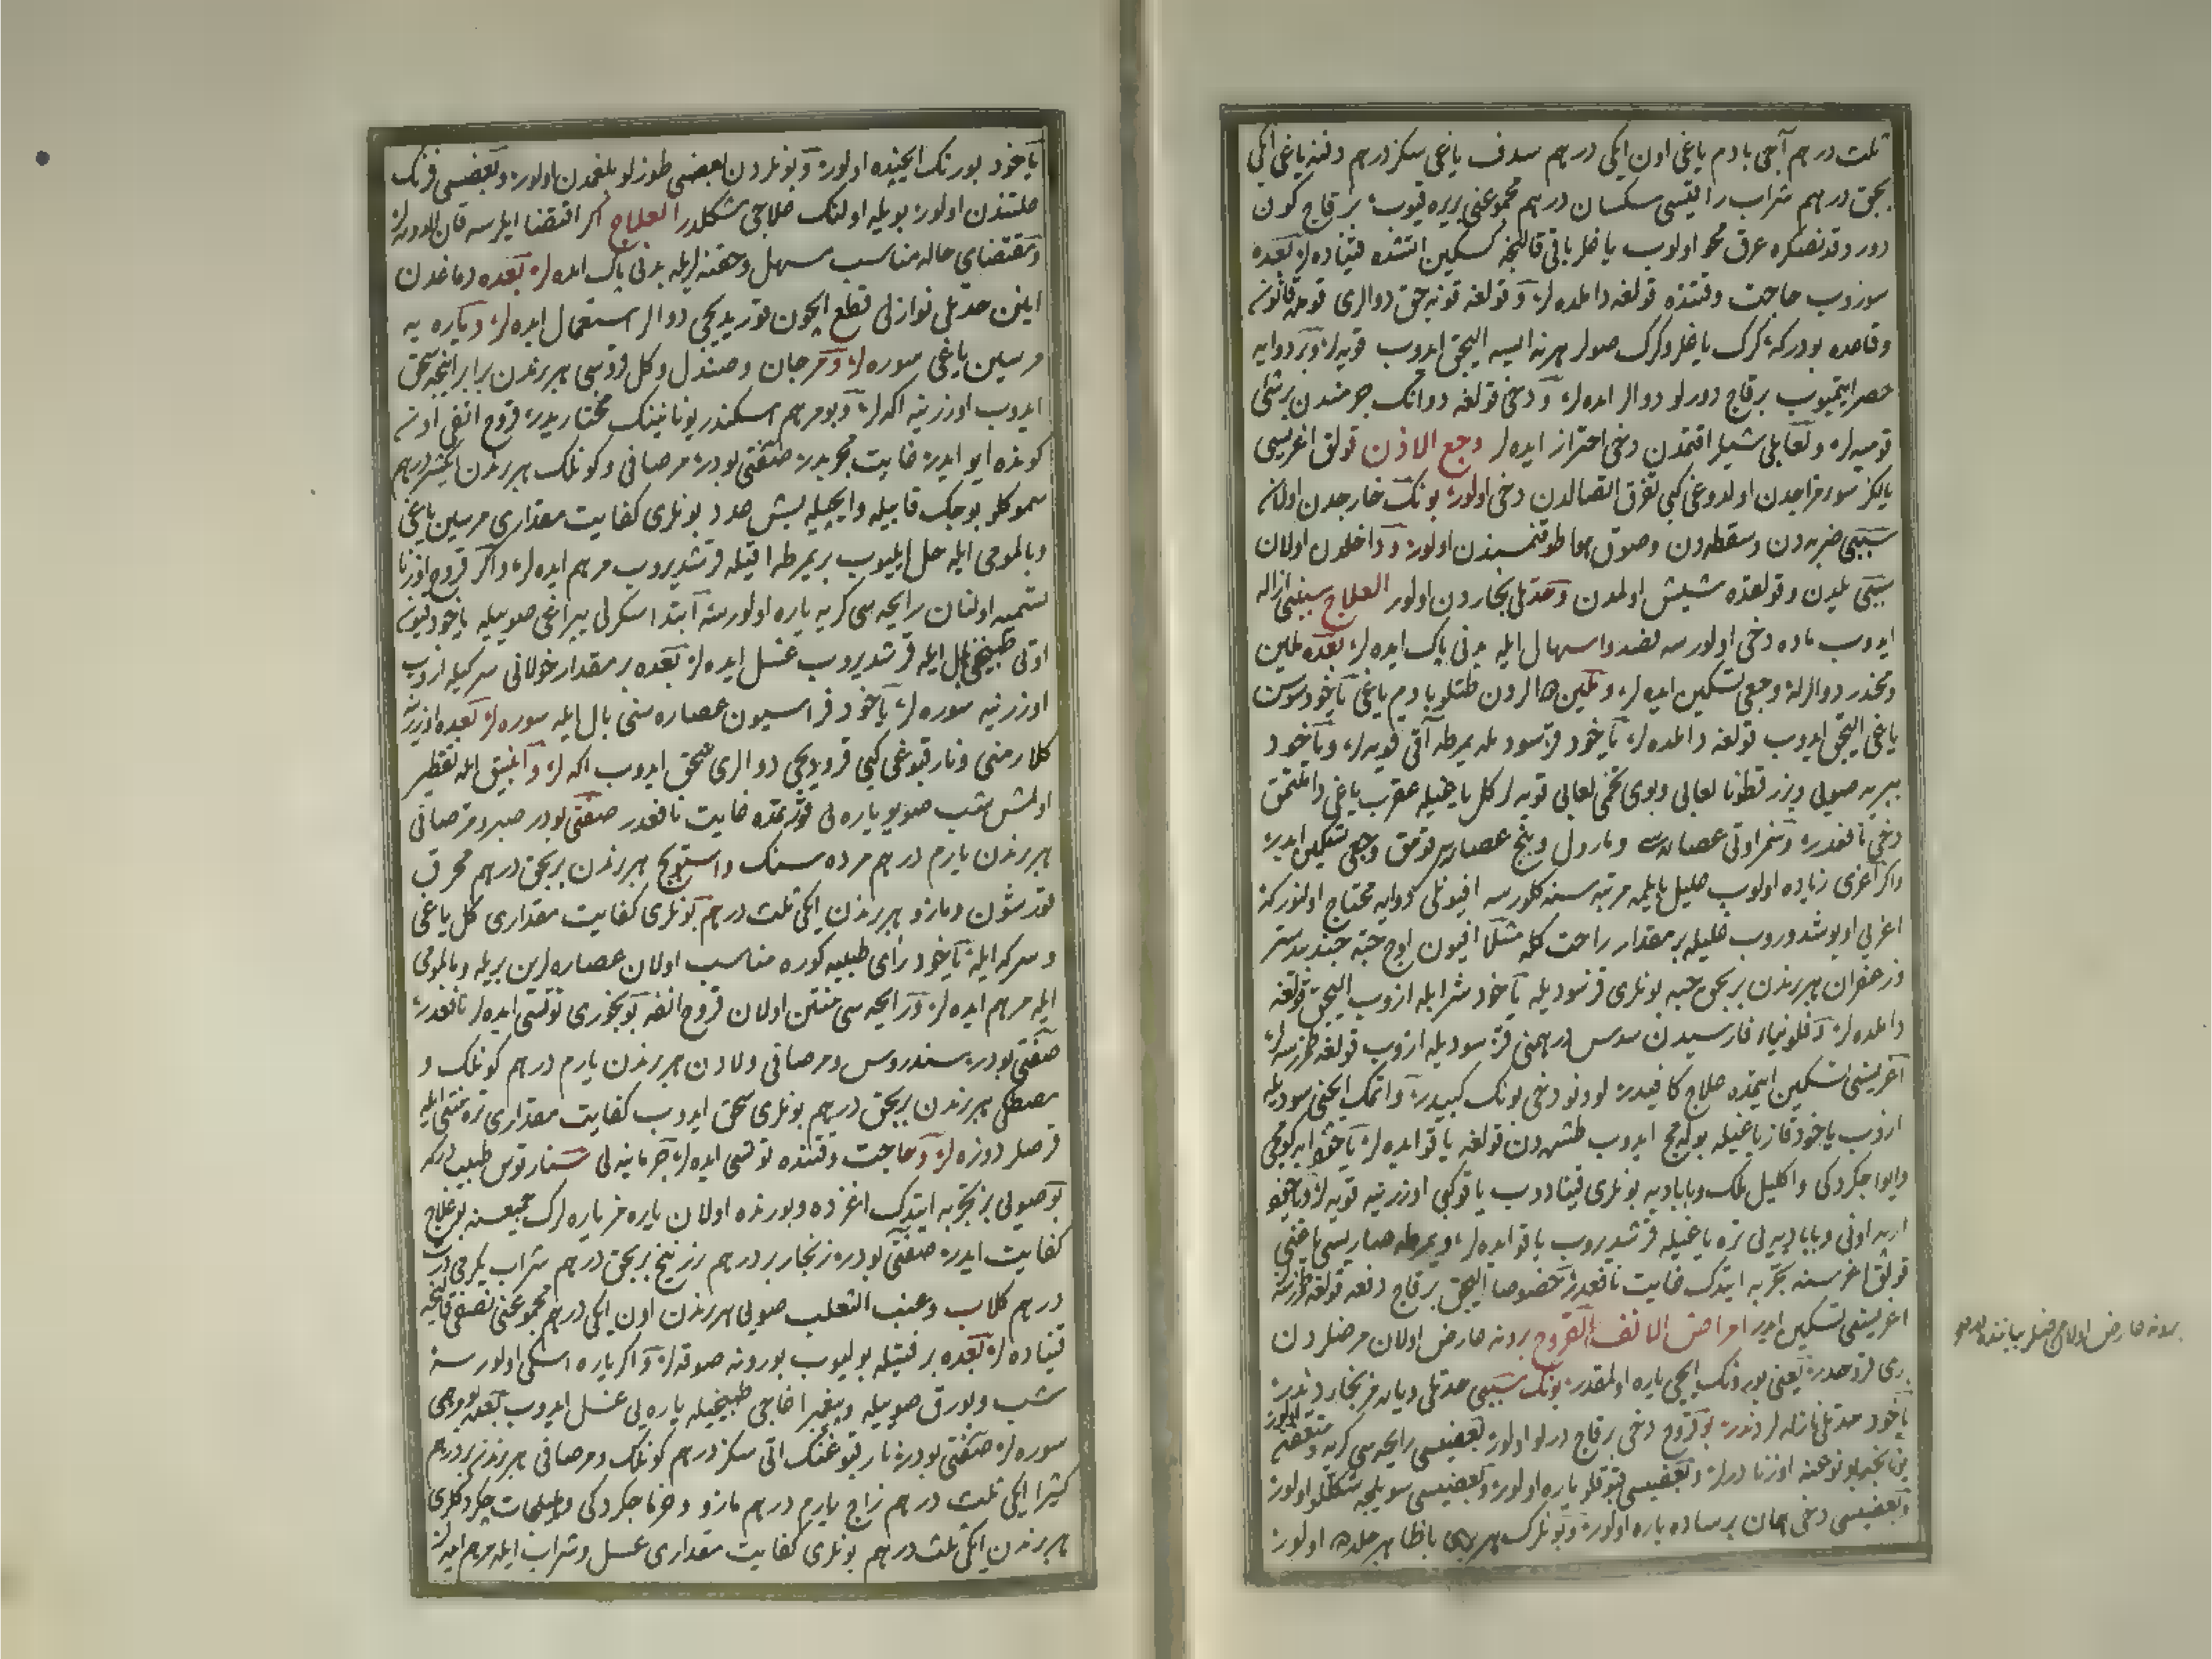 ثلث درهم آجی بادم یاغی اون ایکی درهم سدف یاغی سکز درهم دفنه یاغی ایکی
بچق درهم شراب رالیتسی سکسان درهم مجموعنی بریره قیوب برقاج کون
دوردقدنصکره عرق محو اولوب یاغلر باقی قالنجه سکین آتشده قینادەلر بعده
سوزوب حاجت وقتنده قولغه داملدەلر و قولغه قونەجق دوالری
وقاعده بودركه كرك یاغلر وكرك صولر هرنه ایسه الیجق ایدوب قویەلر و بر دوایه
حصر ایتمیوب برقاج دورلو دوالر ایدەلر و دخی قولغه دوانك جرمندن برشی
قومیەلر و لعابلی شیلر اقتمدن دخی احتراز ایدەلر وجع الاذن قولق اغریسی
یالكز سوء مزاجدن اولدوغی كبی تفرق اتصالدن دخی اولور بونك خارجدن اولانه
سببی ضربەدن و سقطەدن و صوق هوا طوقنمسندن اولور و داخلدن اولان
سببی یلدن و قولقده شیش اولمدن و حدتلی بخاردن اولور العلاج سببنی ازاله
ایدوب ماده دخی اولورسه فصد و اسهال ایله بدنی پاك ایدەلر بعده ملین
و مخدر دوالرله وجعی تسكین ایدەلر و ملین دوالردن طتلو بادم یاغی یاخود سوسن
یاغی الیجق ایدوب قولغه داملدەلر یاخود قز سودیله یمرطه آقی قویەلر و یاخود
بیریه صویی و بزرقطونا لعابی و بوی تخمی لعابی قویەلر كل یاغیله عقرب یاغی داملتمق
دخی نافعدر و شنز اوتی عصارەسی و مارول و بنج عصارەسی قومق وجعی تسكین ایدر
واكر آغری زیاده اولوب علیل بایلمه مرتبەسنه كلورسه افیونلی دوایه محتاج اولنور كه
اغریی اویوشدوروب علیله بر مقدار راحت كله مثلا افیون اوج حبه جندبیدستر
و زعفران هربرندن بر بچق حبه بونلری قز سودیله یاخود شرابله ازوب الیجق قولغه
داملدەلر و فلونیاء فارسیدن سدس درهمنی قز سودیله ازوب قولغه طمزرسەلر
آغریسنی تسكین ایتمده علاج كافیدر لودنو دخی بونك كبیدر و اتمك ایچنی سودیله
ازوب یاخود قاز یاغیله ایدوب طشەدن قولغه یاقو ایدەلر یاخود ابەكومجی
و ایوا جكردكی و اكلیل ملك و بابادیه بونلری قینادوب یاقو كبی اوزرینه قویەلر و یاخود
اربه اونی و بابادیه یی تره یاغیله قرشدیروب یاقو ایدەلر و یمرطه صاریسی یاغنی
قولق اغرسنه تجربه ایتدك غایت نافعدر خصوصا الیجق برقاج دفعه قولغه طمزرسەلر
اغریسنی تسكین ایدر امراض الانف القروح برونه عارض اولان مرضلردن
بری قروحدر یعنی بورونك ایچی یاره اولمقدر بونك سببی حدتلی و یارەمز بخارلردندر
یاخود حدتلی نازلەلردندر بو قروح دخی برقاج درلو اولور بعضیسی رایحەسی كریه و متعفن اولور
بو نوعنه اوزنا دیرلر و بعضیسی قبوقلو یاره اولور و بعضیسی سویلجه شكللو اولور
و بعضیسی دخی همان بر ساده یاره اولور و بونلرك هر بری یا ظاهر جلدده اولور
برونه عارض اولان مرضلر بیاننده در
یاخود بورنك ایچنده اولور و بونلردن بعضی طوزلو بلغمدن اولور و بعضیسی فرنك
علتندن اولور بویله اولنك علاجی مشكلدر العلاج اكر اقتضا ایلرسه قان الدورەلر
و مقتضای حاله مناسب مسهل و حقنه لریله بدنی پاك ایدەلر بعده دماغدن
اینن حدتلی نوازلی قطع ایچون قوریدیجی دوالر استعمال ایدەلر و یارەیه
مرسین یاغی سورەلر و مرجان و صندل و كل قوروسی هربرندن برابر اینجه سحق
ایدوب اوزرینه اكەلر و بو مرهم اسكندر یونانینك مختاریدر قروح انفی اون
كونده ایو ایدر غایت مجربدر صفتی بودر مرصافی و كونلك هربرندن ایكیشر درهم
سموكلو بوجك قابیله و ایچیله بش عدد بونلری كفایت مقداری مرسین یاغی
و بالمومی ایله حل ایلیوب بر یمرطه اقیله قرشدیروب مرهم ایدەلر و اكر قروح اوزنا
تسمیه اولنان رایحەسی كریه یاره اولورسه ابتدا سكرلی بیراغی صویله یاخود
اوتی طبیخنی بال ایله قرشدیروب غسل ایدەلر بعده بر مقدار خولانی سركیله ازوب
اوزرینه سورەلر یاخود فراسیون عصارەسنی بال ایله سورەلر بعده اوزرینه
كلارمنی و نار قبوغی كبی قرودیجی دوالری سحق ایدوب اكەلر و انبیق ایله تقطیر
اولمش شب صویی یارەیی قورتمقده غایت نافعدر صفتی بودر صبر و مرصافی
هربرندن یارم درهم مرده سنك و استوبج هربرندن بربچق درهم محرق
قورشون و مازو هربرندن ایكی ثلث درهم بونلری كفایت مقداری كل یاغی
و سركه ایله یاخود رای طبیبه كوره مناسب اولان عصارەلرین بریله و بالمومی
ایله مرهم ایدەلر و رایحەسی منتن اولان قروح انفه بو بخوری توتسی ایدەلر نافعدر
صفتی بودر سندروس و مرصافی و لادن هربرندن یارم درهم كونلك و
مصطكی هربرندن بربچق درهم بونلری سحق ایدوب كفایت مقداری ترەمنتی ایله
قرصلر دوزەلر و حاجت وقتنده توتسی ایدەلر جرمانیەلی سنارتوس طبیب دركه
بو صویی بز تجربه ایتدك اغزده و بورنده اولان یارەمز یارەلرك جمیعسنه بو علاج
كفایت ایدر صفتی بودر زنجار بر درهم زرنیخ بربچق درهم شراب یكرمی درت
درهم كلاب و عنب الثعلب صویی هربرندن اون ایكی درهم مجموعنی نصفی قالنجه
قینادەلر بعده بر فتیله بولیوب بورونه صوقەلر و اكر یاره اسكی اولورسه
شب و بورق صویله و پیغمبر اغاجی طبیخیله یارەیی غسل ایدوب بعده بو مرهمی
سورەلر صفتی بودر نار قبوغنك اتی سكز درهم كونلك و مرصافی هربرندن بر درهم
كثیرا ایكی ثلث درهم زاج یارم درهم مازو و خرما جكردكی و جكردكلری
هربرندن ایكی ثلث درهم بونلری كفایت مقداری عسل و شراب ایله مرهم ایدەلر